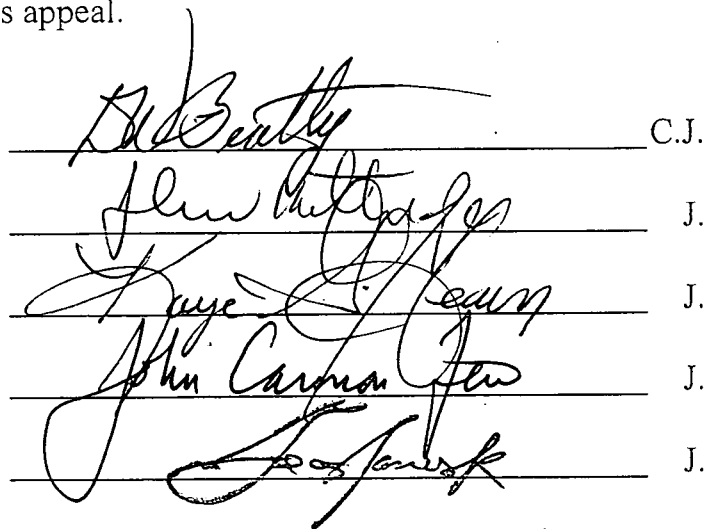 s appeal.
Beatty C.J.
John Kittredge J.
Kaye G. Hearn J.
John Cannon Few J.
J.